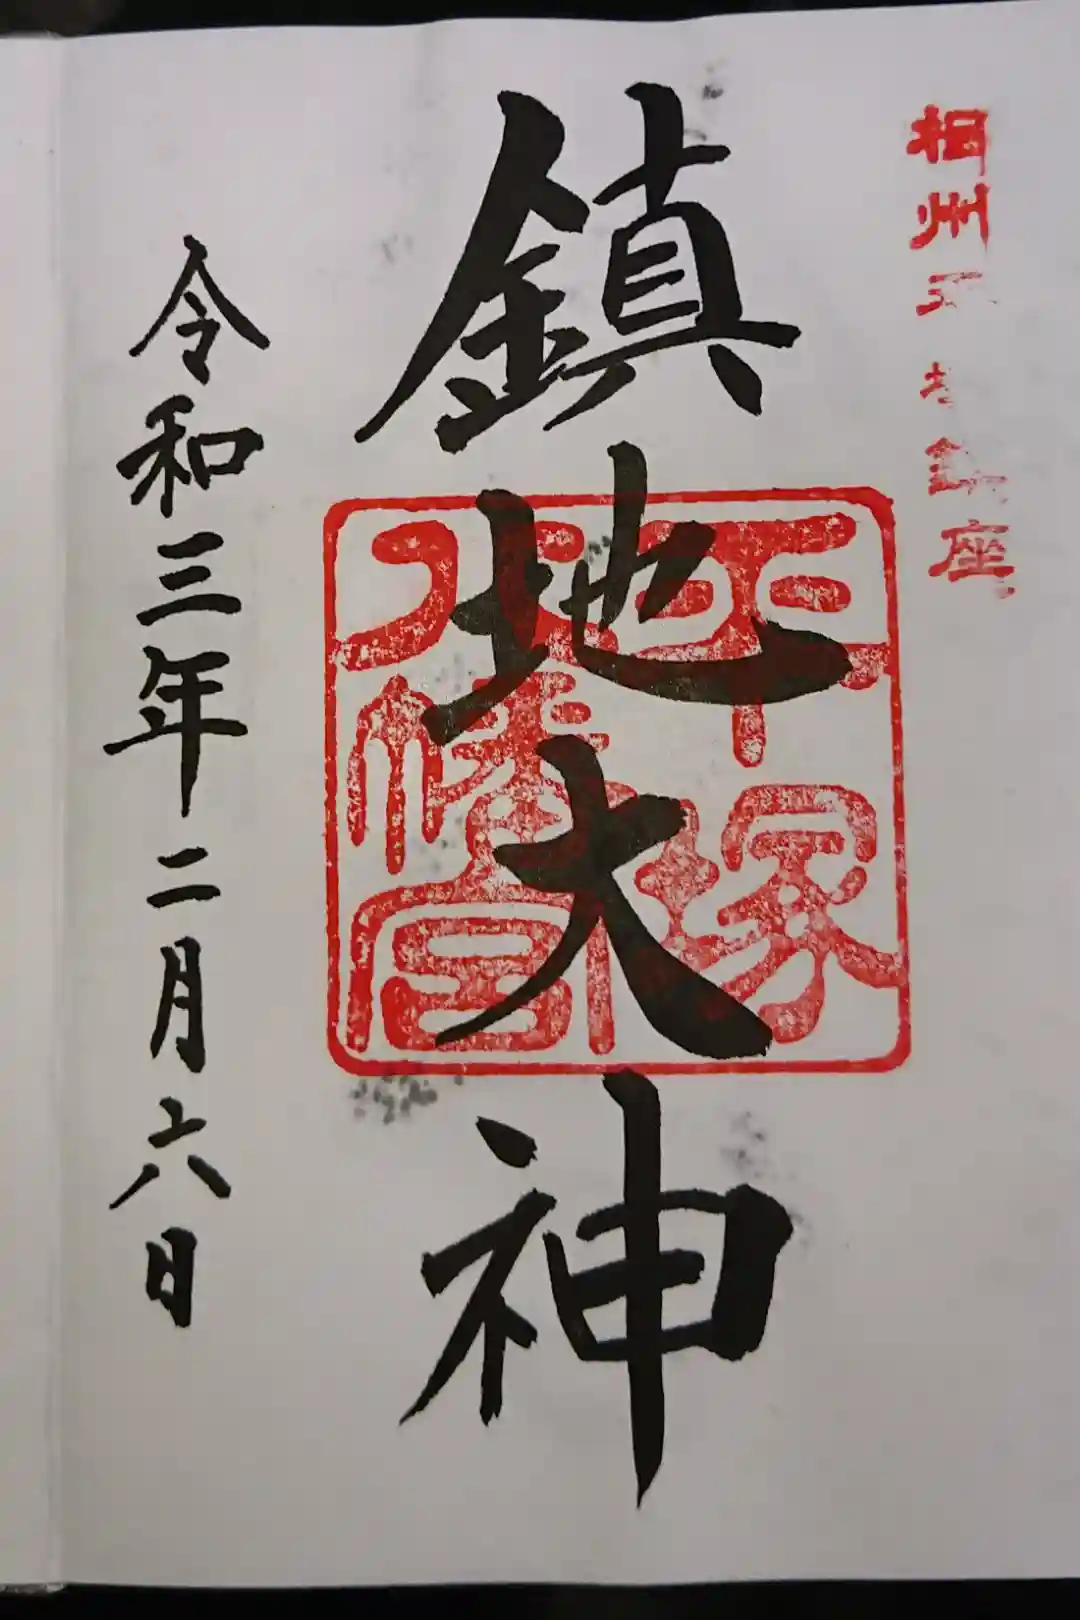 相州平塚鎮座
鎮地大神
平塚
八幡宮
令和三年二月六日